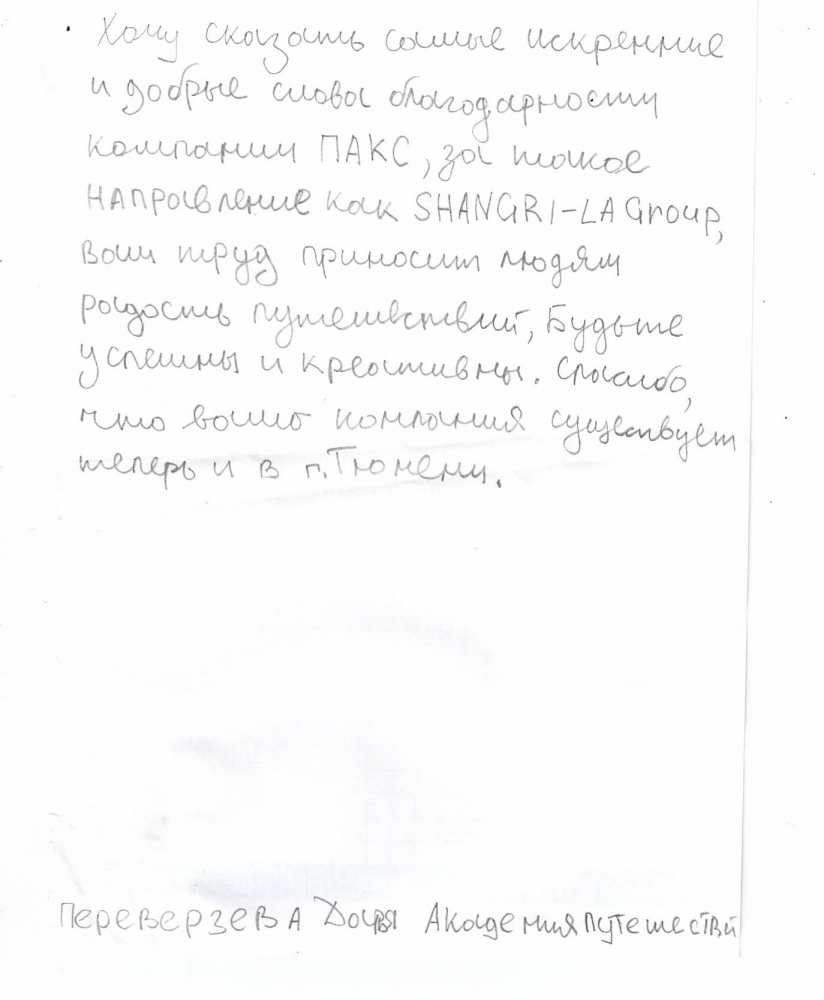 Хочу сказать самые искренние
и добрые слова благодарности
компании ПАКС, за такое
направление как SHANGRI-LA Group,
Ваш труд приносит людям
радость путешествий, Будьте
успешны и креативны. Спасибо,
что ваша компания существует
теперь и в г. Тюмени.
Переверзева Дарья Академия путешестви